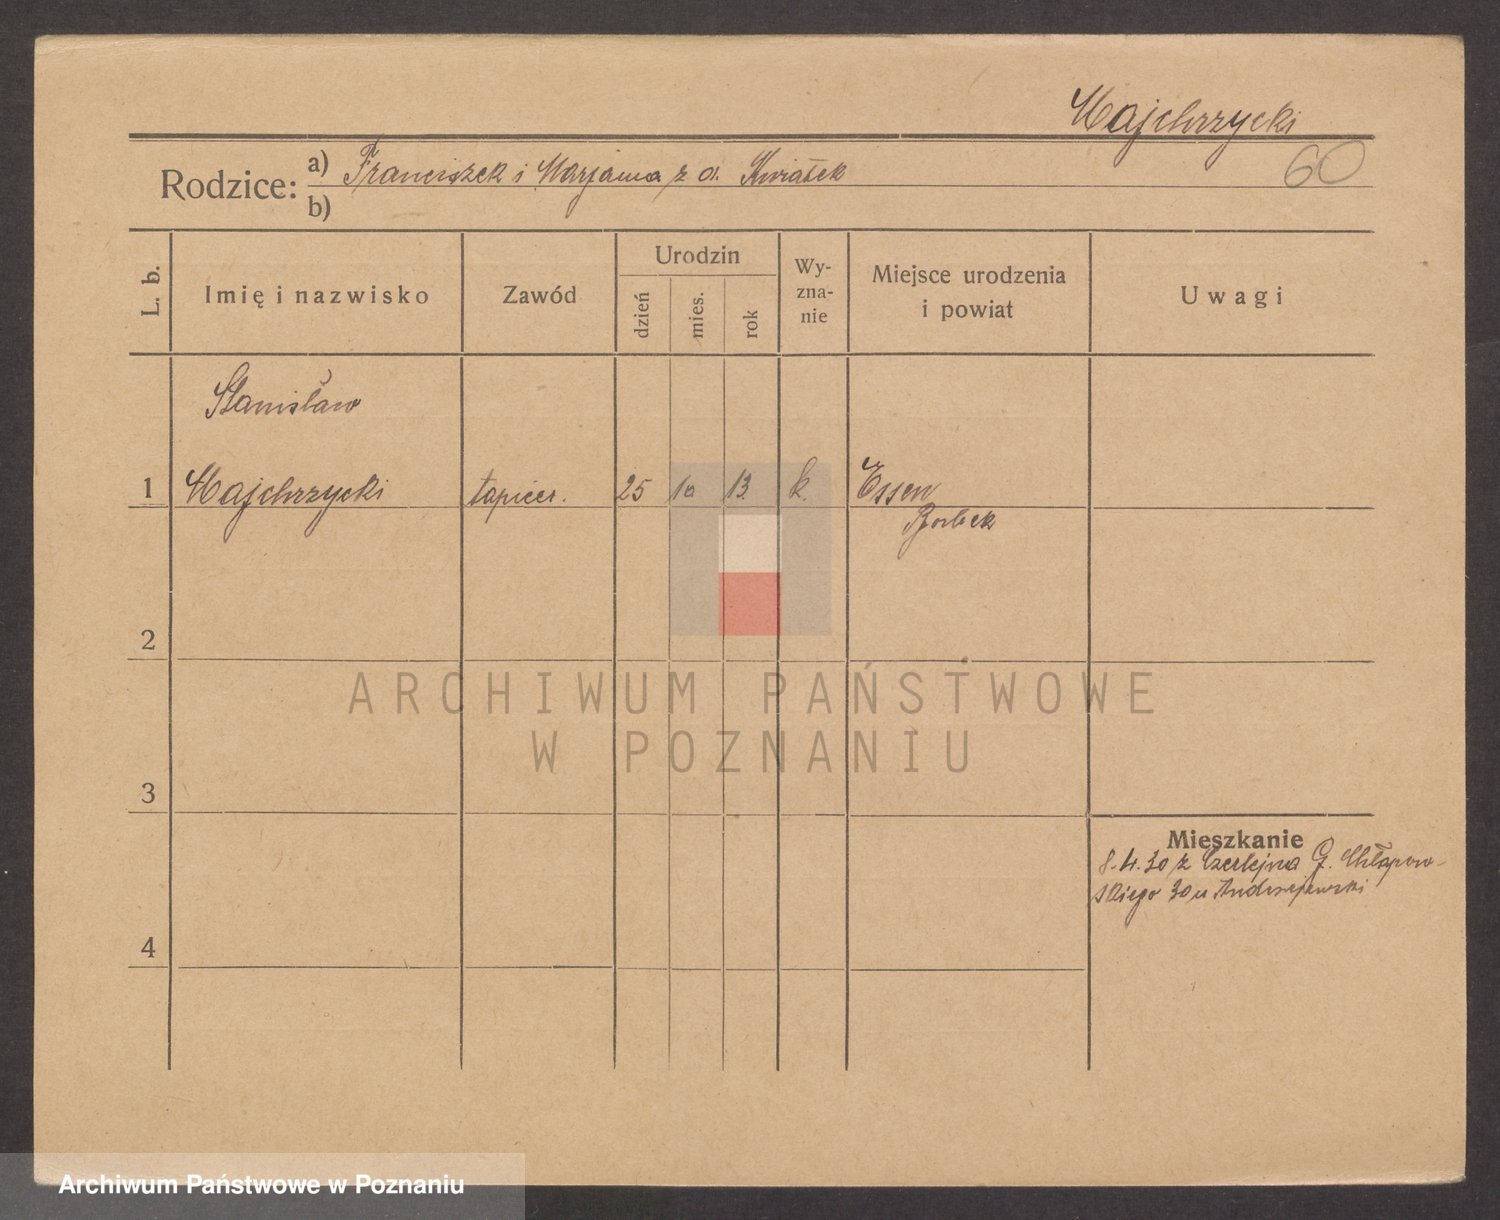 Majchrzycki
60
Rodzice: a) Franciszek i Marjanna z d. Kwiatek
b)
L. b.
Imię i nazwisko
Zawód
Urodzin
dzień
mies.
rok
Wy-
zna-
nie
Miejsce urodzenia
i powiat
Uwagi
Stanisław
1 Majchrzycki tapicer. 25 10 13 k. Essen
Borbek
2
3
4
Mieszkanie
8.4.30 z Czerlejna G. Chłapow-
skiego 30 u Andrzejewski
ARCHIWUM PAŃSTWOWE
W POZNANIU
Archiwum Państwowe w Poznaniu